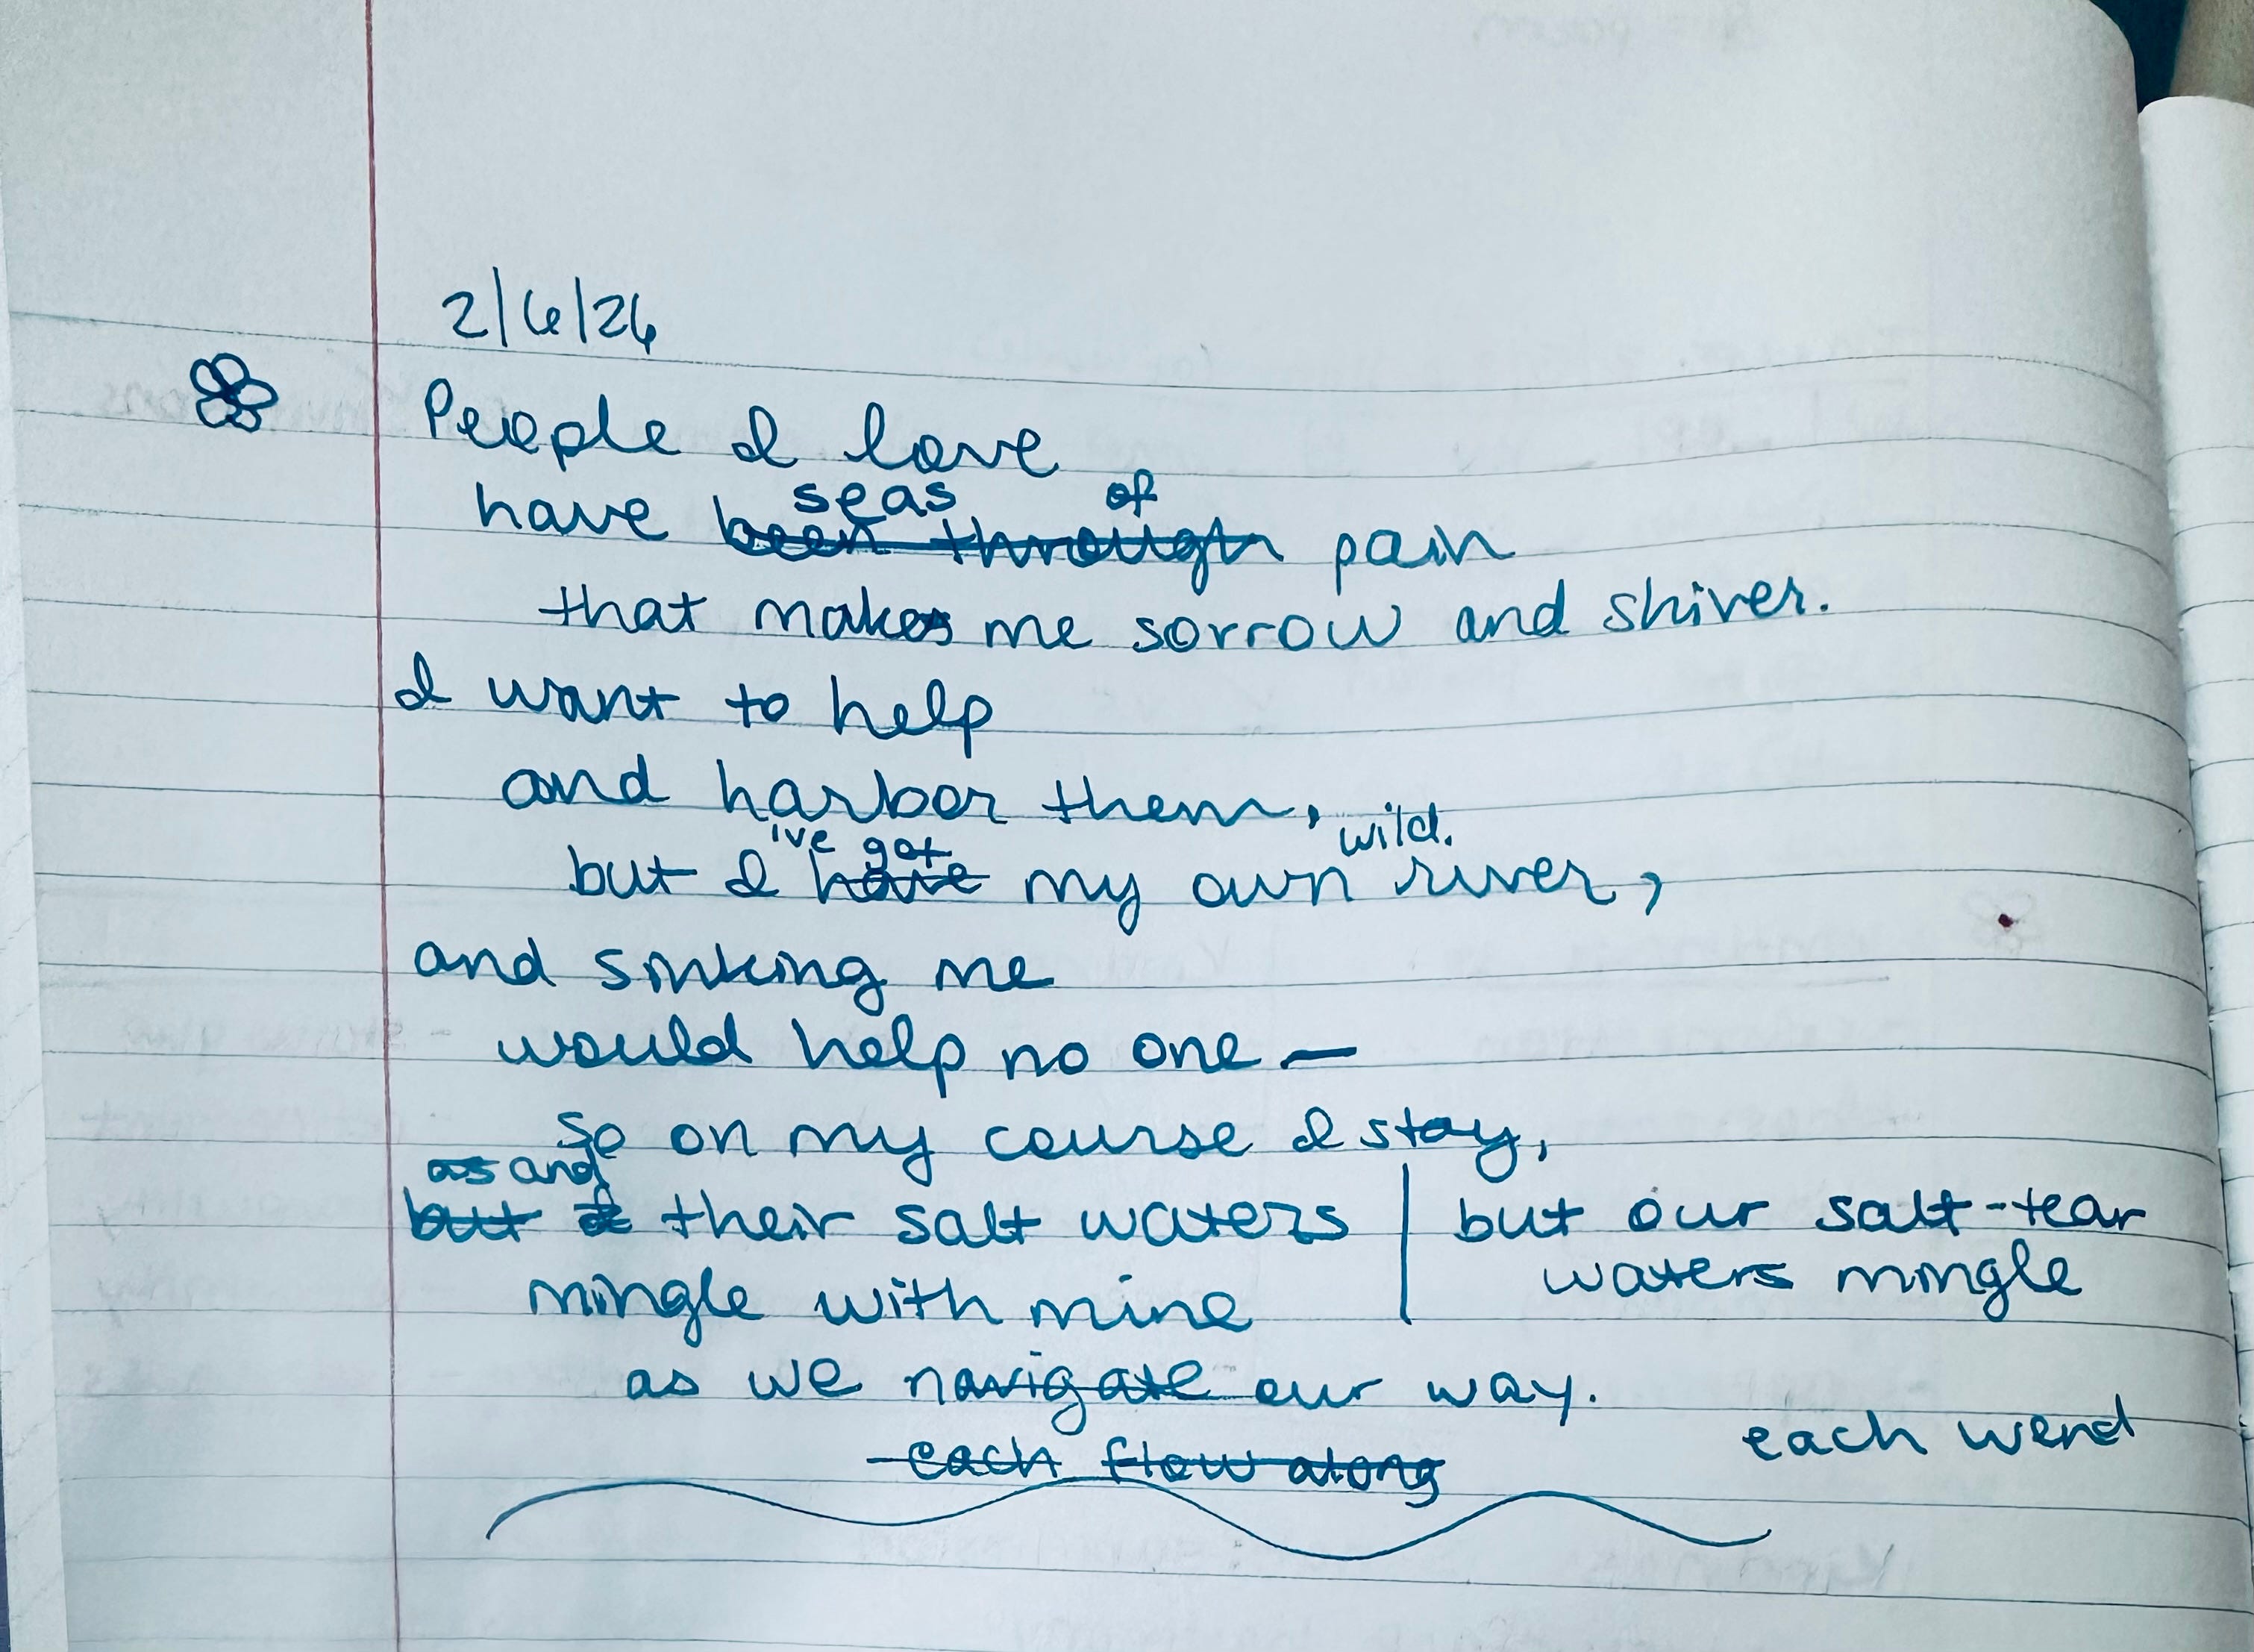 2/6/26
People I love
seas of
have been through pain
that makes me sorrow and shiver.
I want to help
and harbor them,
've got wild.
but I have my own river,
and sinking me
would help no one —
so on my course I stay,
as and
but I their salt waters | but our salt-tear
waters mingle
mingle with mine
as we navigate our way.
each wend
each flow along